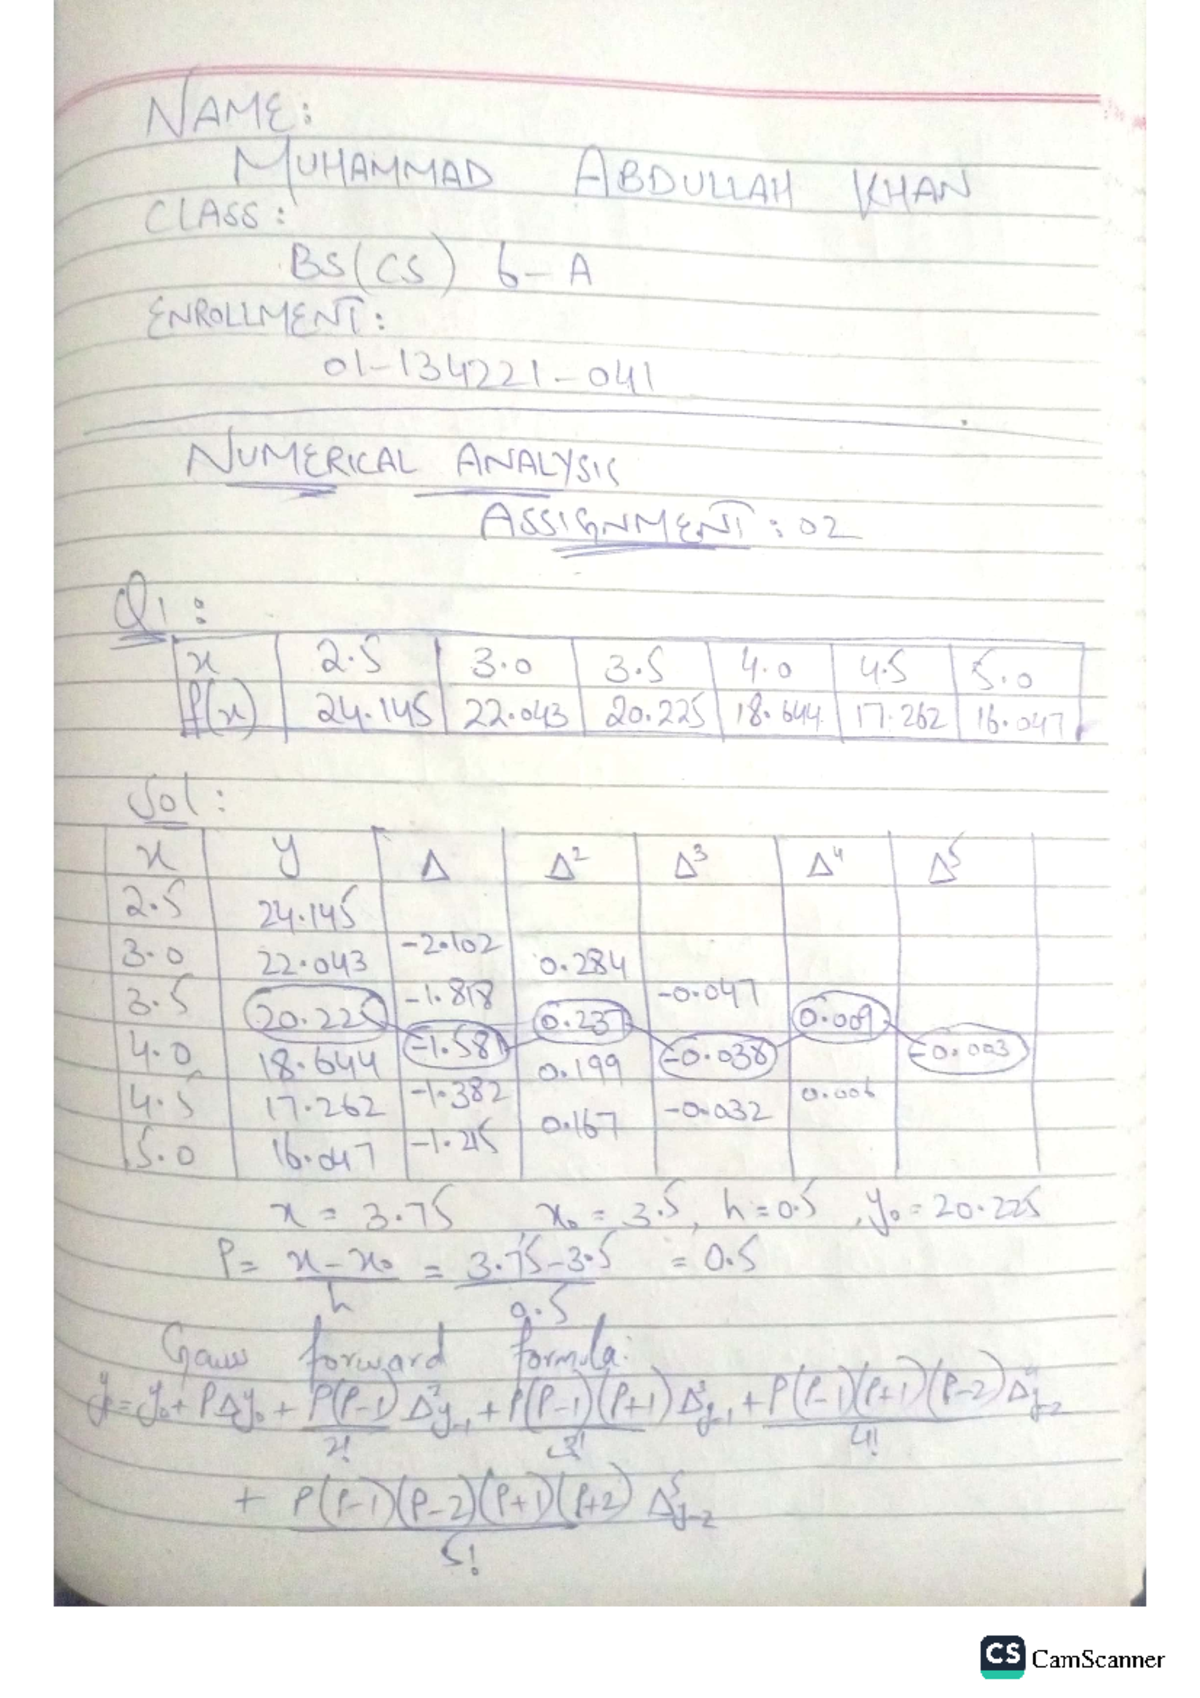 NAME:
MUHAMMAD ABDULLAH KHAN
CLASS:
BS(CS) 6-A
ENROLLMENT:
01-134221-041
NUMERICAL ANALYSIS
ASSIGNMENT: 02
Q1:
x 2.5 3.0 3.5 4.0 4.5 5.0
f(x) 24.145 22.043 20.225 18.644 17.262 16.047
Sol:
x y Δ Δ² Δ³ Δ⁴ Δ⁵
2.5 24.145
-2.102
3.0 22.043 0.284
-1.818 -0.047
3.5 20.225 0.237 0.009
-1.581 -0.038 -0.003
4.0 18.644 0.199 0.006
-1.382 -0.032
4.5 17.262 0.167
-1.215
5.0 16.047
x = 3.75 , x₀ = 3.5, h = 0.5 , y₀ = 20.225
P = (x - x₀)/h = (3.75 - 3.5)/0.5 = 0.5
Gauss forward formula:
y = y₀ + PΔy₀ + P(P-1)/2! Δ²y₋₁ + P(P-1)(P+1)/3! Δ³y₋₁ + P(P-1)(P+1)(P-2)/4! Δ⁴y₋₂
+ P(P-1)(P-2)(P+1)(P+2)/5! Δ⁵y₋₂
CS CamScanner